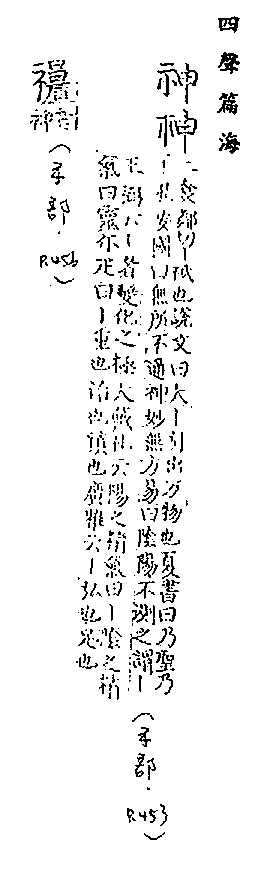 四聲篇海
神神
二食鄰切丨祇也說文曰天丨引出万物也夏書曰乃聖乃
丨孔安國曰無所不通神妙無方易曰陰陽不測之謂丨
王弼云丨者變化之極大戴礼云陽之精氣曰丨陰之精
氣曰靈尔疋曰丨重也治也慎也廣雅云丨弘也
(示部. P.453)
音神
(示部. P.456)